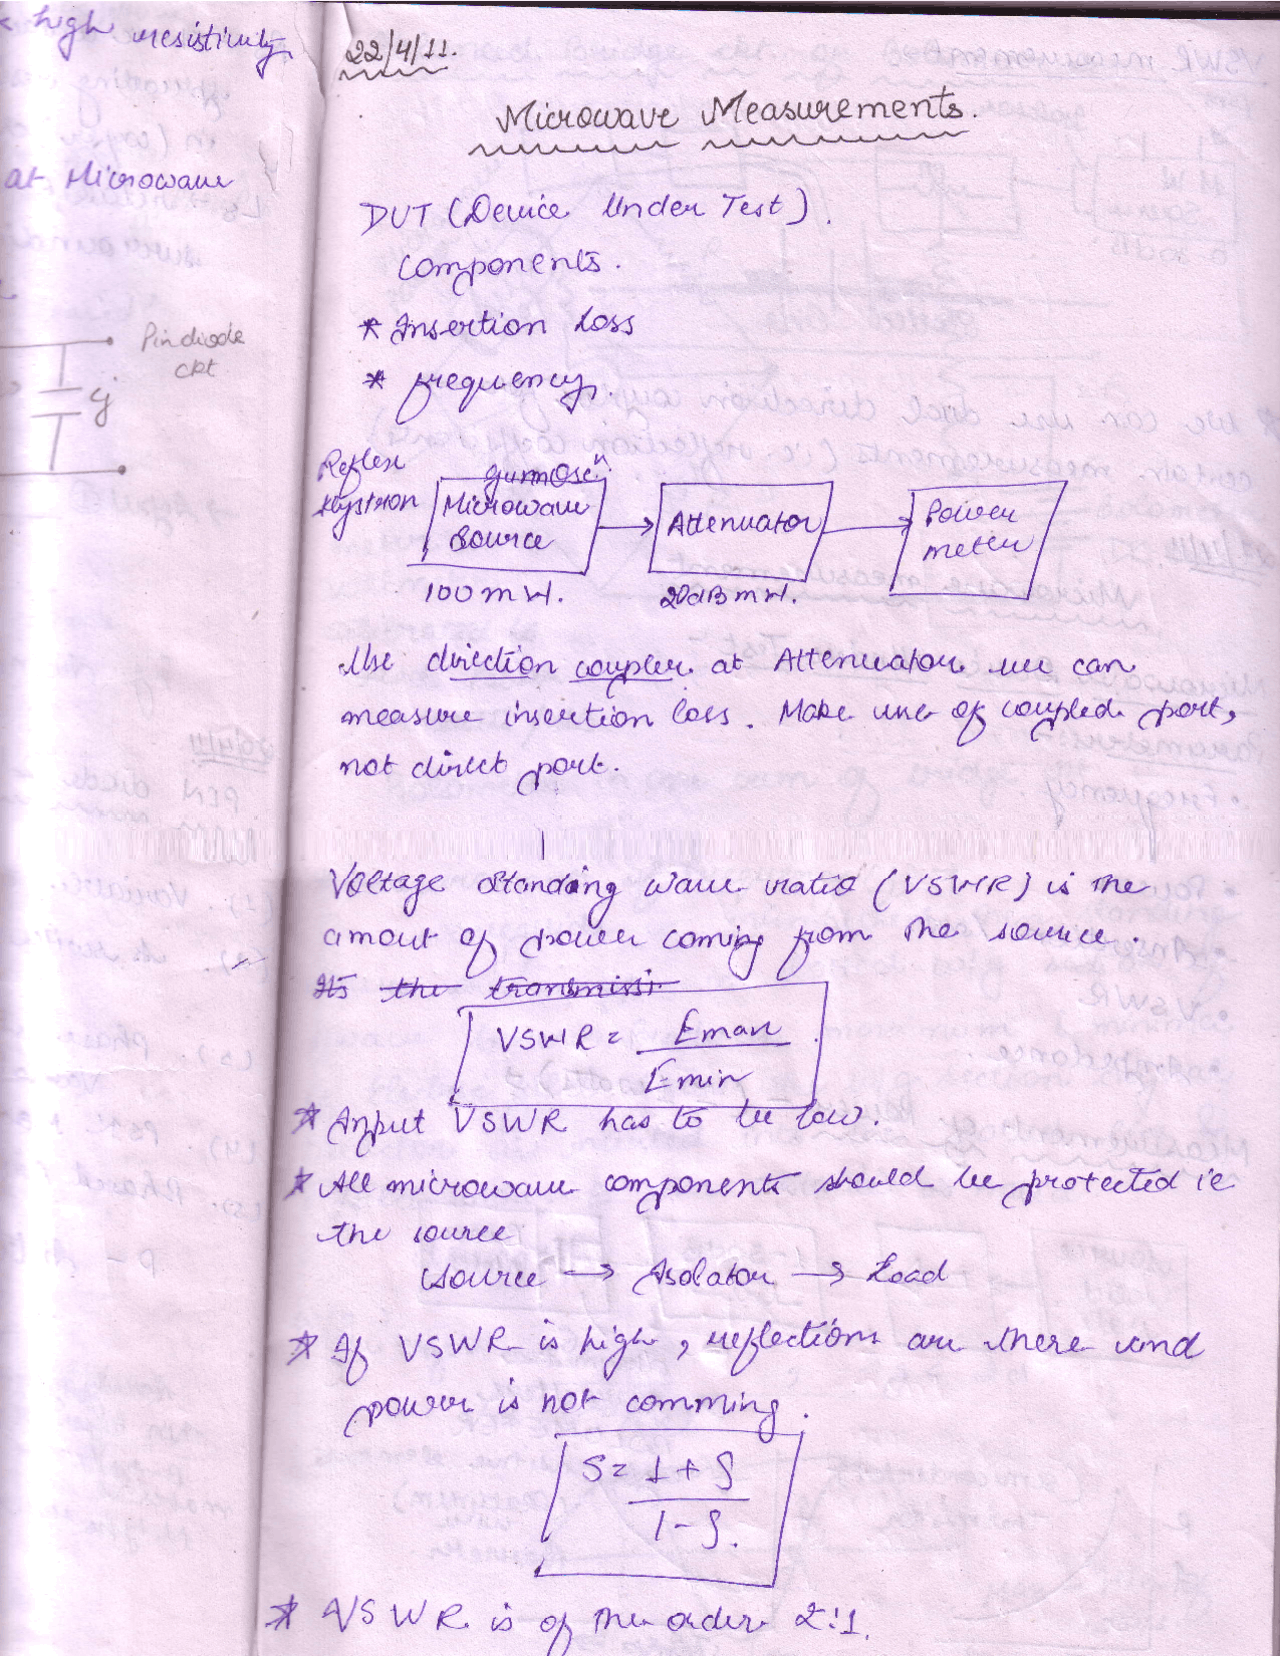 high resistivity
at Microwave
Pin diode
ckt
Cj
22/4/11.
Microwave Measurements.
DUT (Device Under Test).
components.
* Insertion Loss
* frequency
Reflex
klystron
gunnoscn.
Microwave
Source
100mW.
Attenuator
20dBmW.
Power
meter
Use direction coupler at Attenuator we can
measure insertion loss. Make use of coupled port,
not direct port.
Voltage standing wave ratio (VSWR) is the
amout of power coming from the source.
Its the transmissi
VSWR = Emax
Emin
* Input VSWR has to be low.
* All microwave components should be protected ie
the source
Source → Isolator → Load
* If VSWR is high, reflections are there and
power is not comming.
S = 1 + ρ
1 - ρ.
* VSWR is of the order 2:1.